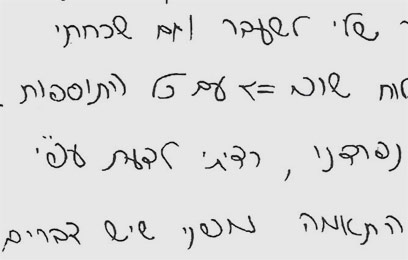 שלי לשעבר וגם שכחתי
לוח שונה => עם כל התוספות.
נפרדנו, רציתי לדעת עפ"י
התאמה מפני שיש דברים